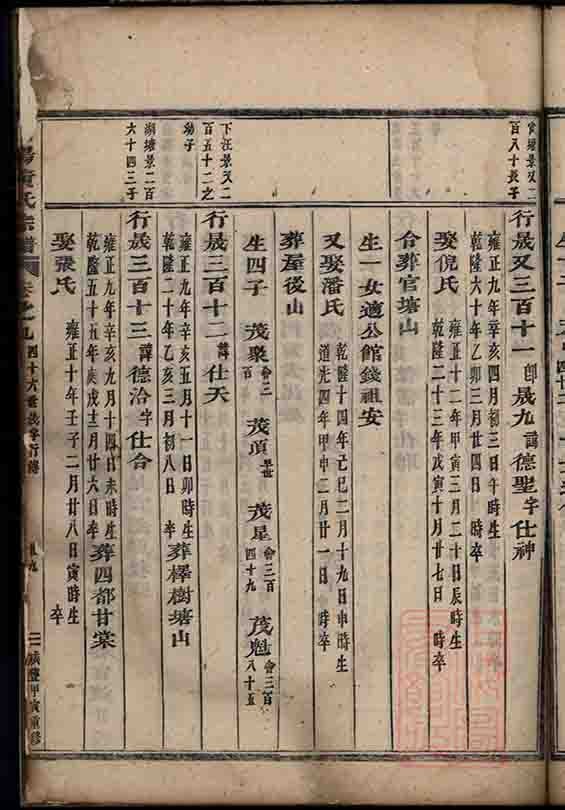 寅塘景又二
百八十長子
行晟又三百十一郎晟九諱德聖字仕神
雍正九年辛亥四月初三日午時生
乾隆六十年乙卯三月廿四日 時卒
娶倪氏
雍正十二年甲寅三月二十日辰時生
乾隆二十三年戊寅十月廿七日 時卒
合葬官塘山
生一女適公館錢祖安
又娶潘氏
乾隆十四年己巳二月十九日申時生
道光四年甲申二月廿一日 時卒
葬屋後山
生四子 茂聚會三百 茂頂早世 茂星會三百四十九 茂魁會三百八十五
下汪景又二
百五十二之
幼子
行晟三百十二諱仕天
雍正九年辛亥五月十一日卯時生
乾隆二十年乙亥三月初八日 卒
葬檡樹塘山
湖塘景二百
六十四三子
行晟三百十三諱德洽字仕合
雍正九年辛亥九月十四日未時生
乾隆五十五年庚戌十二月廿六日 卒
葬四都甘棠
娶張氏
雍正十年壬子二月廿八日寅時生
卒
氏宗譜 卷之九 四十六世 行傳
咸豐甲寅重修